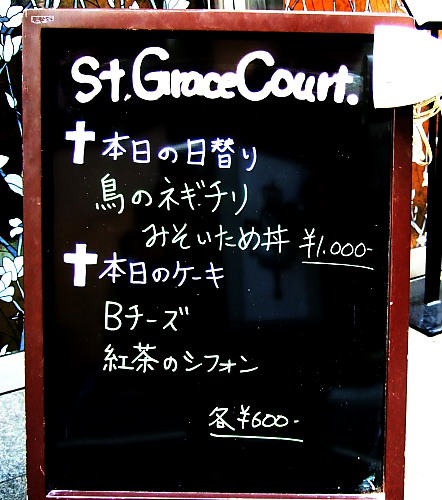 St. Grace Court.
本日の日替り
鳥のネギチリ
みそいため丼 ¥1.000-
本日のケーキ
Bチーズ
紅茶のシフォン
各¥600-